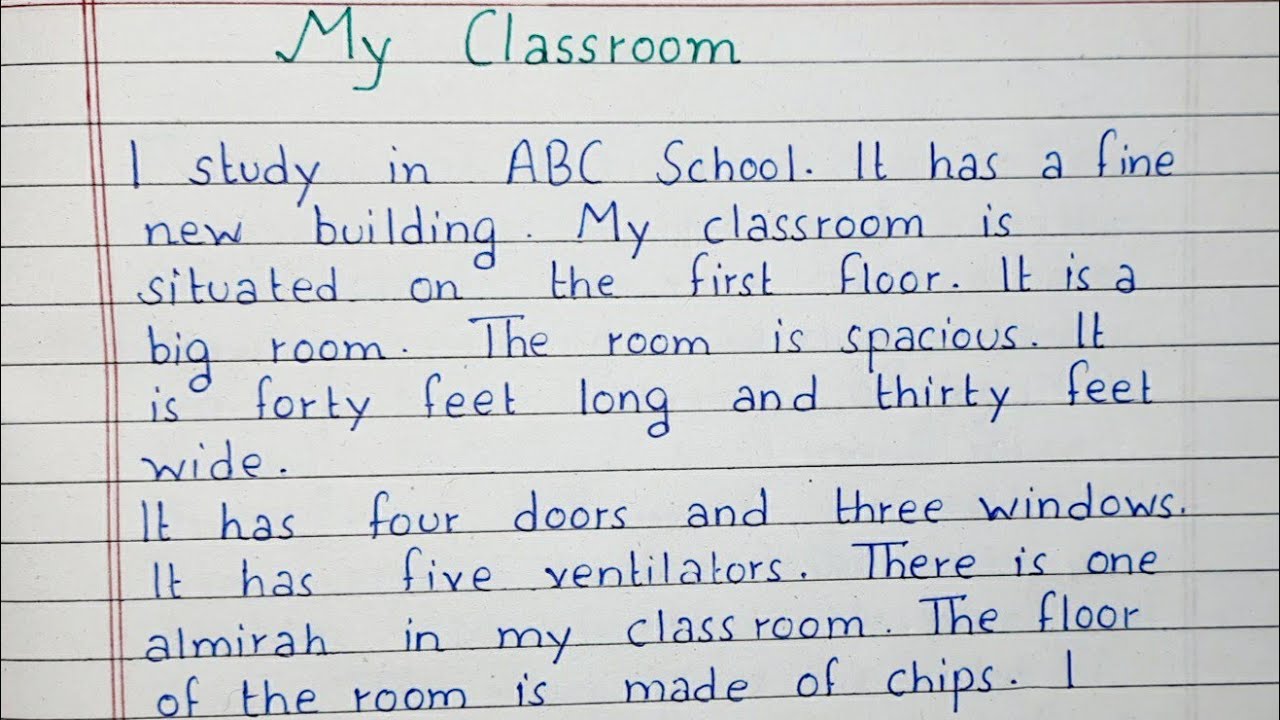 My Classroom
I study in ABC School. It has a fine
new building. My classroom is
situated on the first floor. It is a
big room. The room is spacious. It
is forty feet long and thirty feet
wide.
It has four doors and three windows.
It has five ventilators. There is one
almirah in my classroom. The floor
of the room is made of chips. I